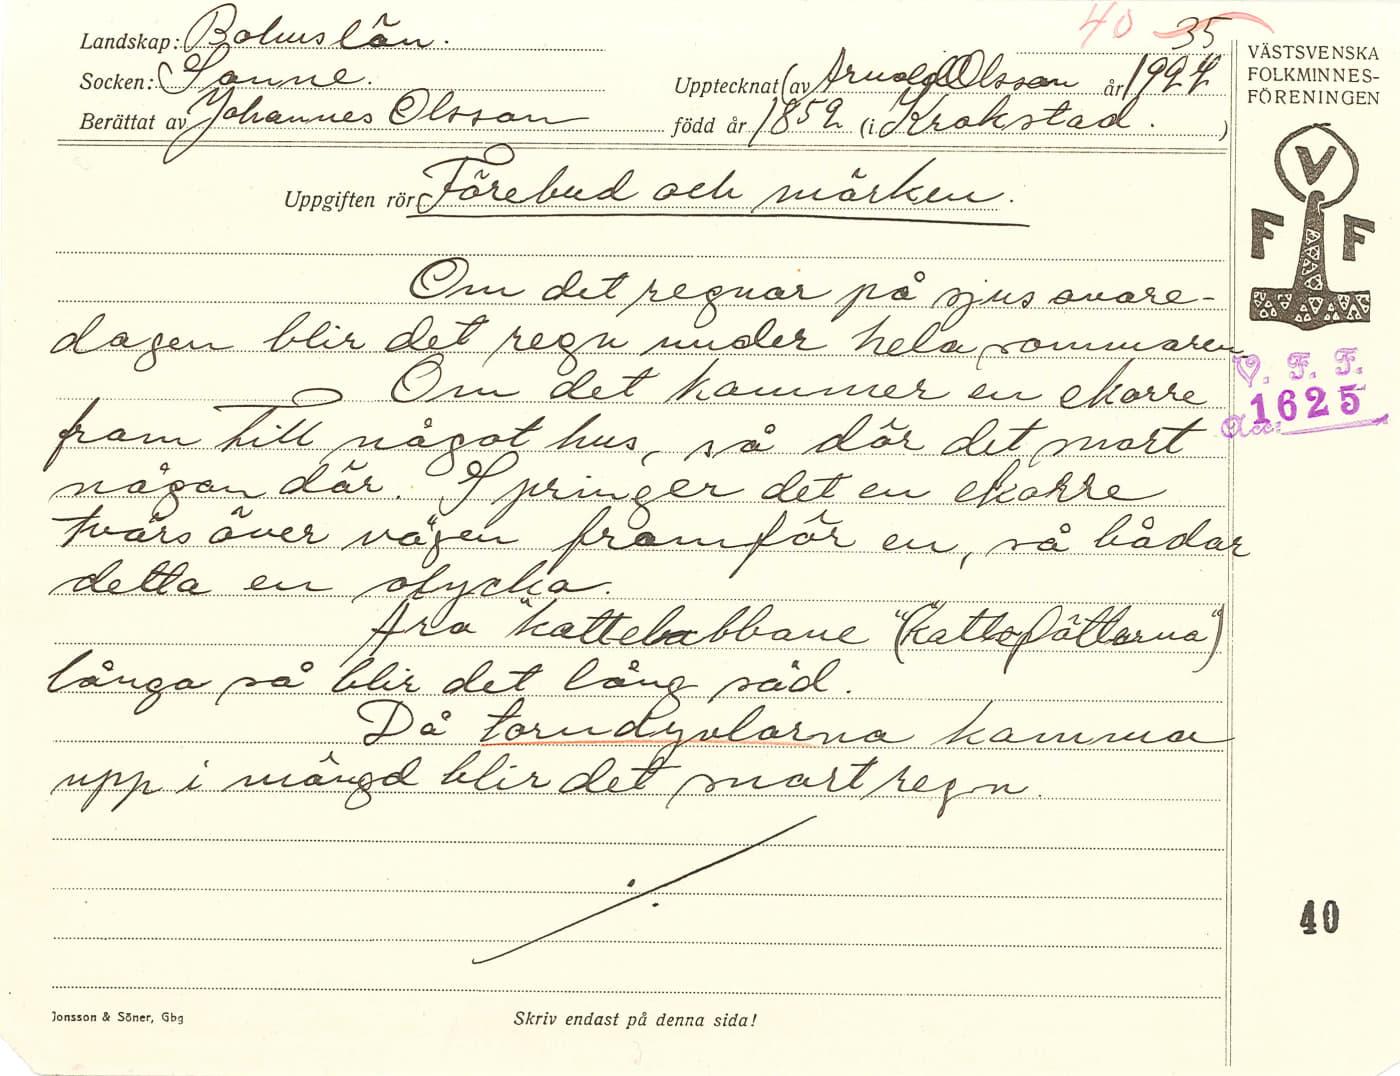 40 35
Landskap: Bohuslän.
Socken: Sanne.
Upptecknat av Arnold Olsson år 1924
Berättat av Johannes Olsson född år 1852 (i Krokstad. )
Uppgiften rör Förebud och märken.
Om det regnar på sjusovare-
dagen blir det regn under hela sommaren
Om det kommer en ekorre
fram till något hus, så dör det snart
någon där. Springer det en ekorre
tvärs över vägen framför en, så bådar
detta en olycka.
Ara "kattelabbane" ("kattopåttarna")
långa så blir det lång säd.
Då torndyvlarna komma
upp i mängd blir det snart regn.
Jonsson & Söner, Gbg
Skriv endast på denna sida!
VÄSTSVENSKA
FOLKMINNES-
FÖRENINGEN
V
F F
V. F. F.
Acc. 1625
40